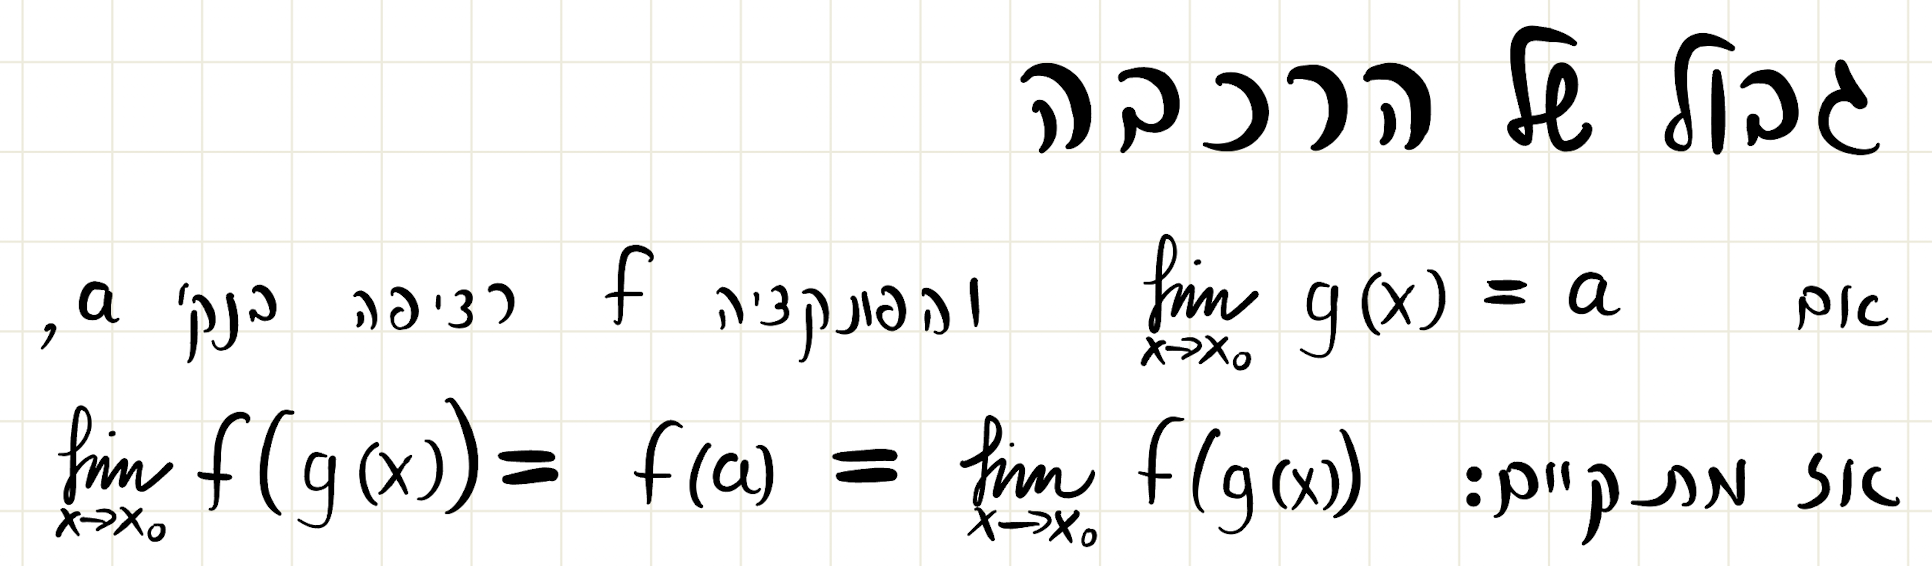 גבול של הרכבה
אם lim x→x₀ g(x) = a והפונקציה f רציפה בנק' a,
אז מתקיים: lim x→x₀ f(g(x)) = f(a) = lim x→x₀ f(g(x))